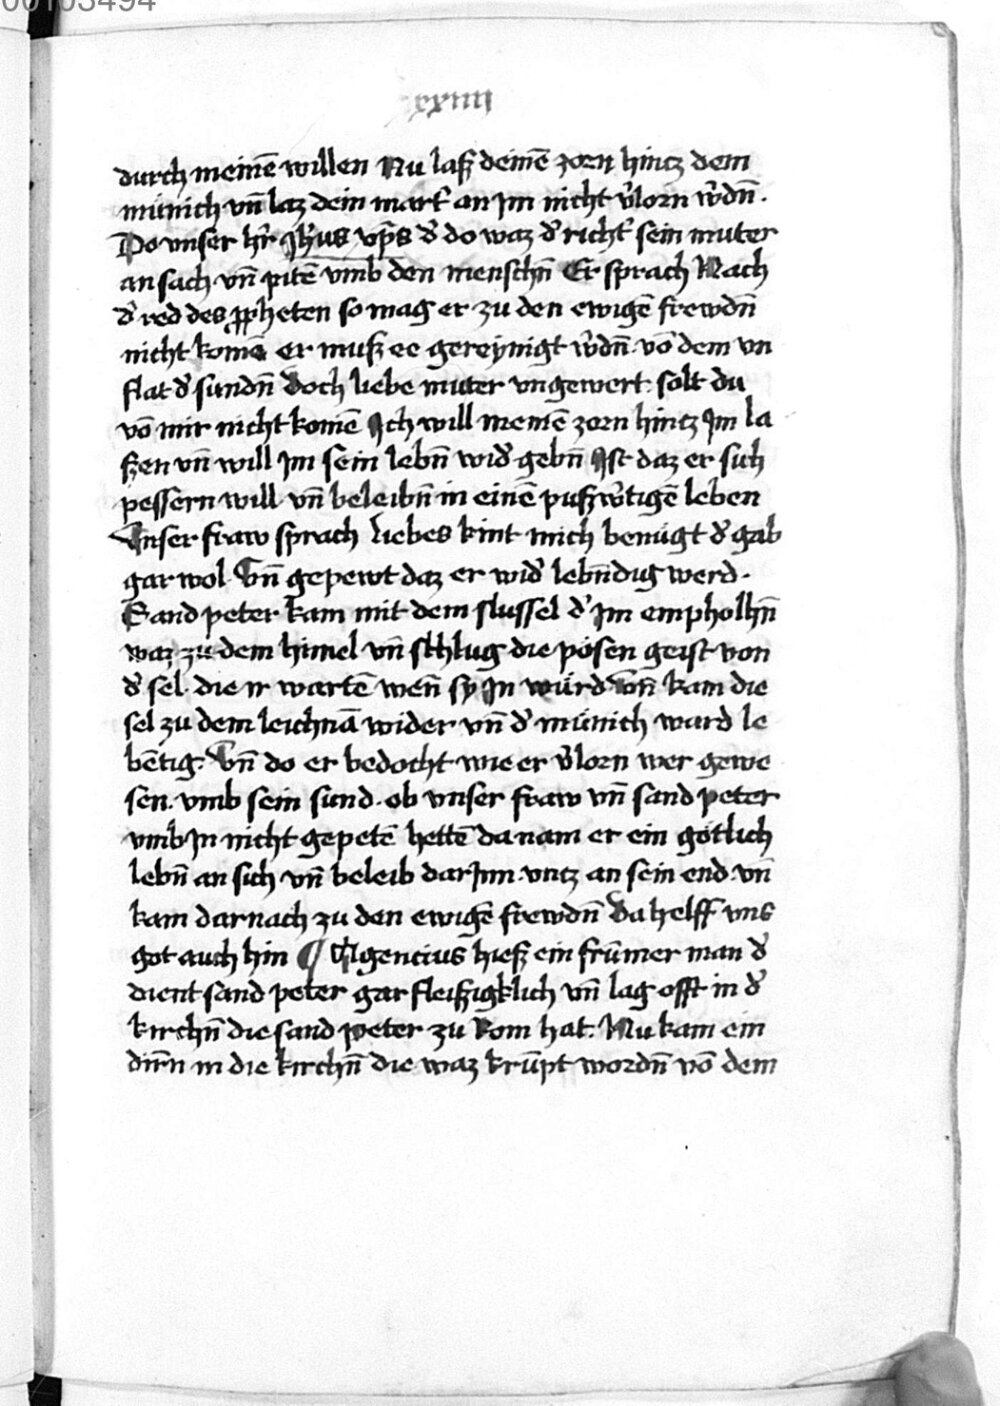 00103494
xxiiij
durch meinē willen Nu laß deinē zorn hintz dem
münich vn̄ laz dein mart̛ an jm nicht v̛lorn w̛dn̄.
Do vnser hr̄ Jh̄us xp̄s d̛ do waz d̛ richt̛ sein muter
an sach vn̄ pitē vmb den menschn̄ Er sprach Nach
d̛ red des ꝓpheten so mag er zu den ewigē frewdn̄
nicht komē er muß ee gereynigt w̛dn̄ vō dem vn
flat d̛ sundn̄ Doch liebe muter vngewert solt du
vō mir nicht komē Jch will meinē zorn hintz Jm la
ßen vn̄ will Jm sein lebn̄ wid̛ gebn̄ Jst daz er sich
pessern will vn̄ beleibn̄ in einē pußw̛tigē leben
Vnser fraw sprach Liebes kint mich benügt d̛ gab
gar wol Vn̄ gepewt daz er wid̛ lebn̄dug werd.
Sand peter kam mit dem slussel d̛ jm empholhn̄
waz zu dem himel vn̄ schlug die pösen geist von
d̛ sel die ir wartē wen̄ sy Jn würd Vn̄ kam die
sel zu dem leichnā wider vn̄ d̛ münich ward le
bētig: Vn̄ do er bedocht wie er v̛lorn wer gewe
sen. vmb sein sund. ob vnser fraw vn̄ sand peter
vmb Jn nicht gepetē hettē da nam er ein götlich
lebn̄ an sich vn̄ beleib darJnn vntz an sein end vn̄
kam darnach zu den ewigē frewdn̄ Da helff vns
got auch hin ¶ Agencius hieß ein frūmer man d̛
dient sand peter gar fleißigklich vn̄ lag offt in d̛
kirchn̄ die sand peter zu Rom hat. Nu kam ein
dirn̄ in die kirchn̄ die waz krūpt wordn̄ vō dem